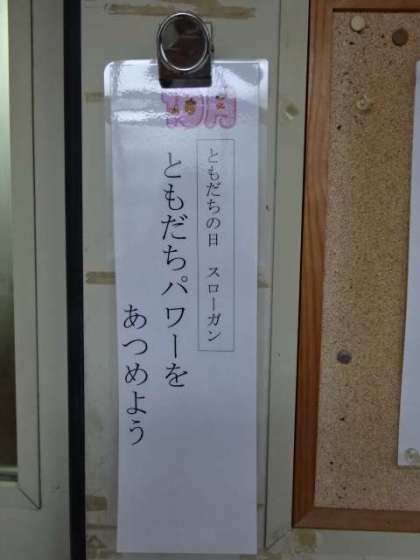 10月
ともだちの日　スローガン
ともだちパワーを
あつめよう